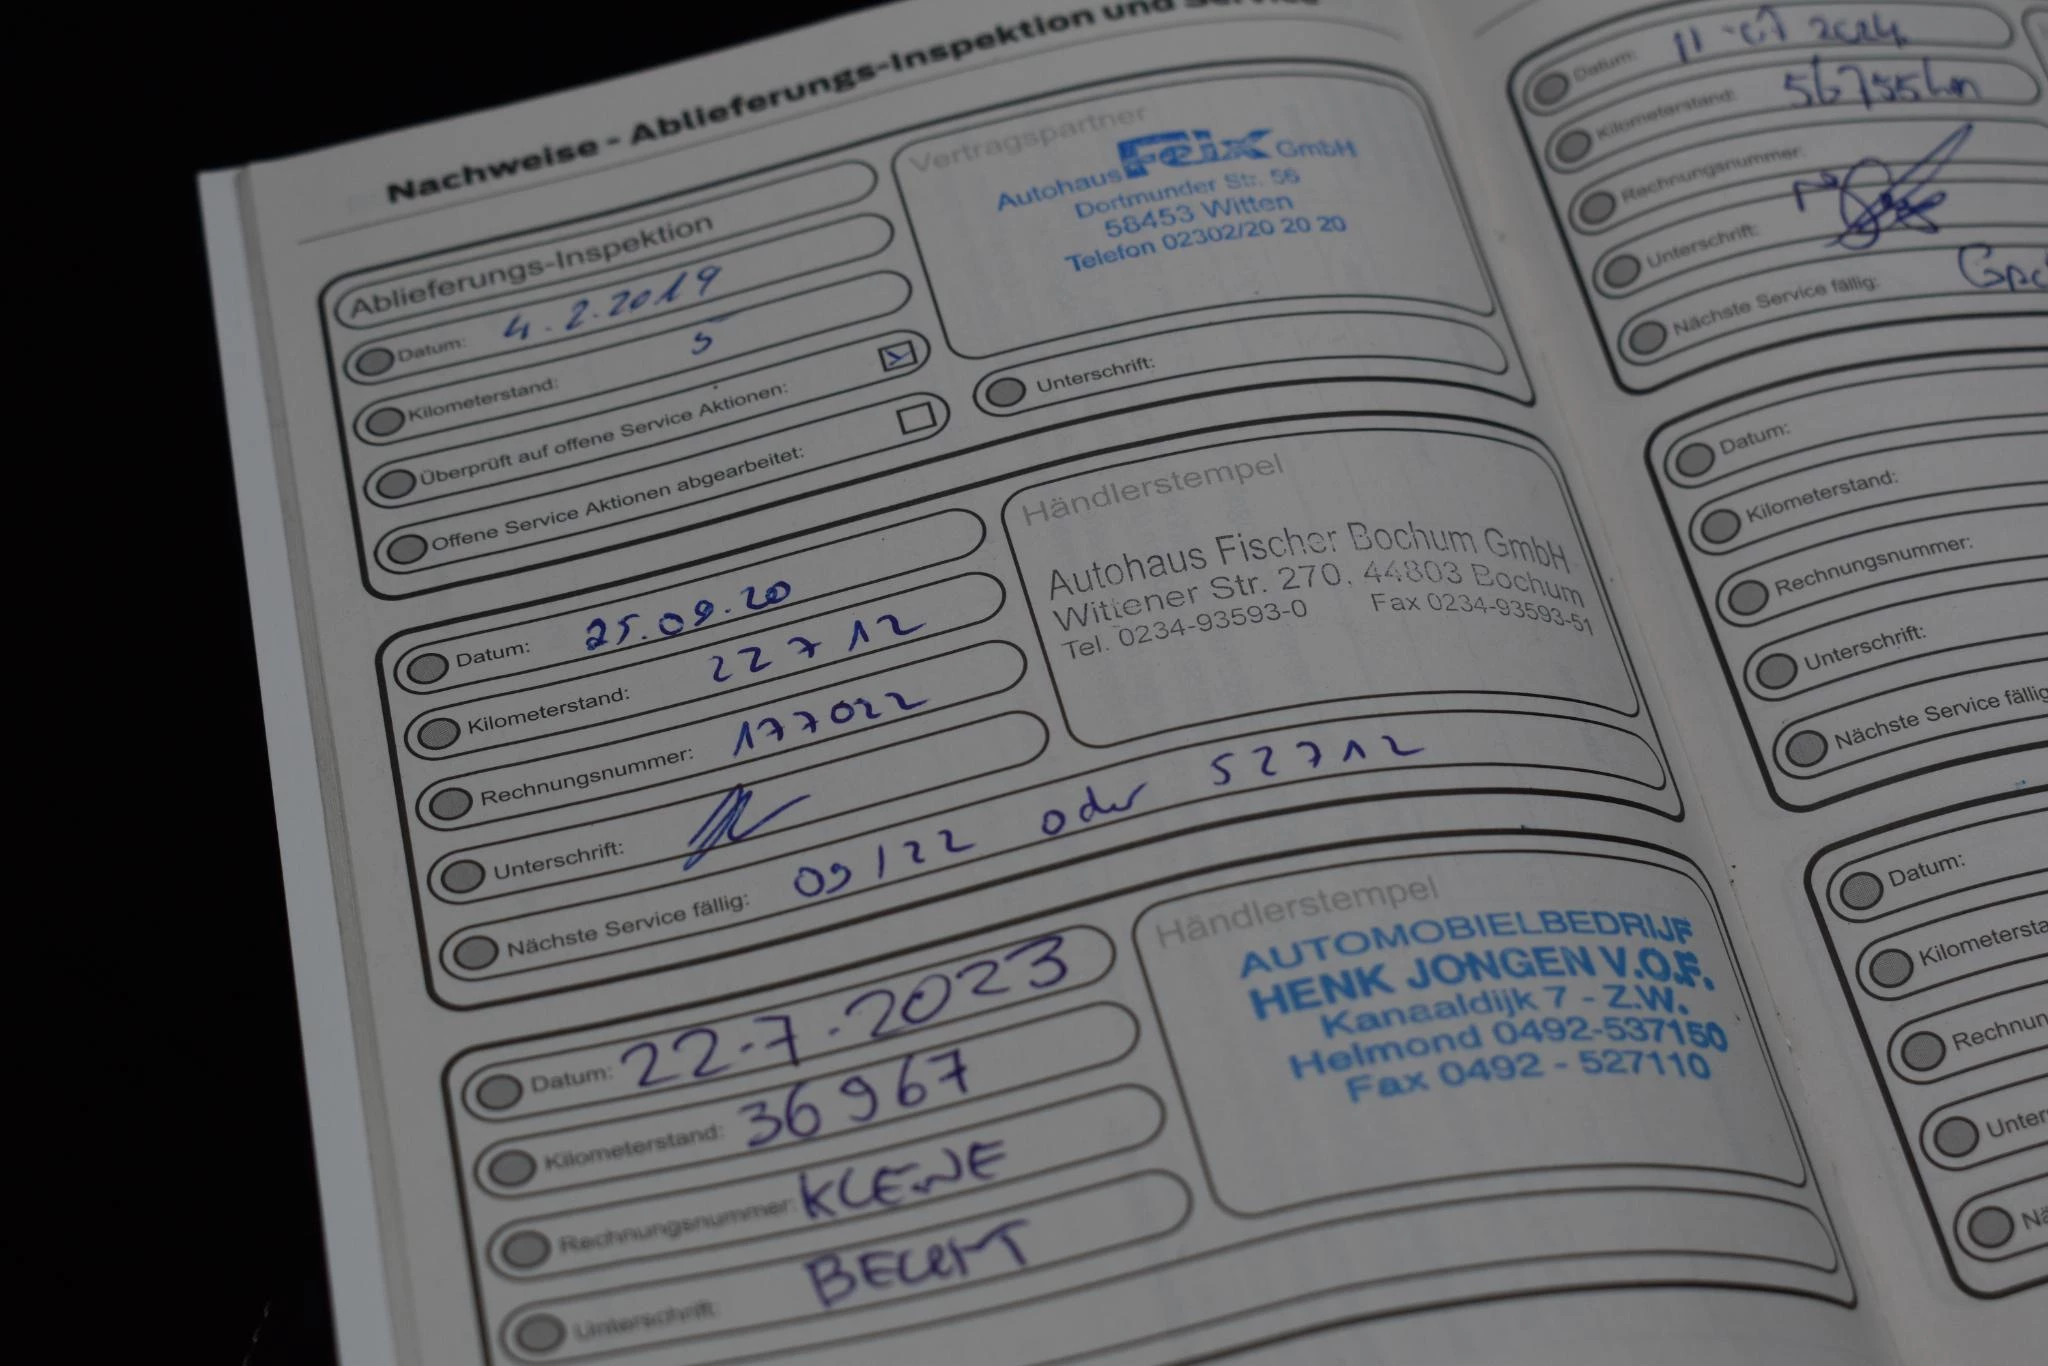 Nachweise - Ablieferungs-Inspektion und Service
Ablieferungs-Inspektion
Datum: 4.2.2019
Kilometerstand: 5
Überprüft auf offene Service Aktionen:
Offene Service Aktionen abgearbeitet:
Vertragspartner
Autohaus Feix GmbH
Dortmunder Str. 56
58453 Witten
Telefon 02302/20 20 20
Unterschrift:
Datum: 25.09.20
Kilometerstand: 22712
Rechnungsnummer: 177022
Unterschrift:
Nächste Service fällig: 09/22 oder 52712
Händlerstempel
Autohaus Fischer Bochum GmbH
Wittener Str. 270, 44803 Bochum
Tel. 0234-93593-0 Fax 0234-93593-51
Datum: 22-7-2023
Kilometerstand: 36967
Rechnungsnummer: KLEINE
Unterschrift: BEURT
Händlerstempel
AUTOMOBIELBEDRIJF
HENK JONGEN V.O.F.
Kanaaldijk 7 - Z.W.
Helmond 0492-537150
Fax 0492 - 527110
Datum: 11-07 2024
Kilometerstand: 56755km
Rechnungsnummer:
Unterschrift:
Nächste Service fällig:
Datum:
Kilometerstand:
Rechnungsnummer:
Unterschrift:
Nächste Service fällig
Datum:
Kilometersta
Rechnun
Unter
Nä